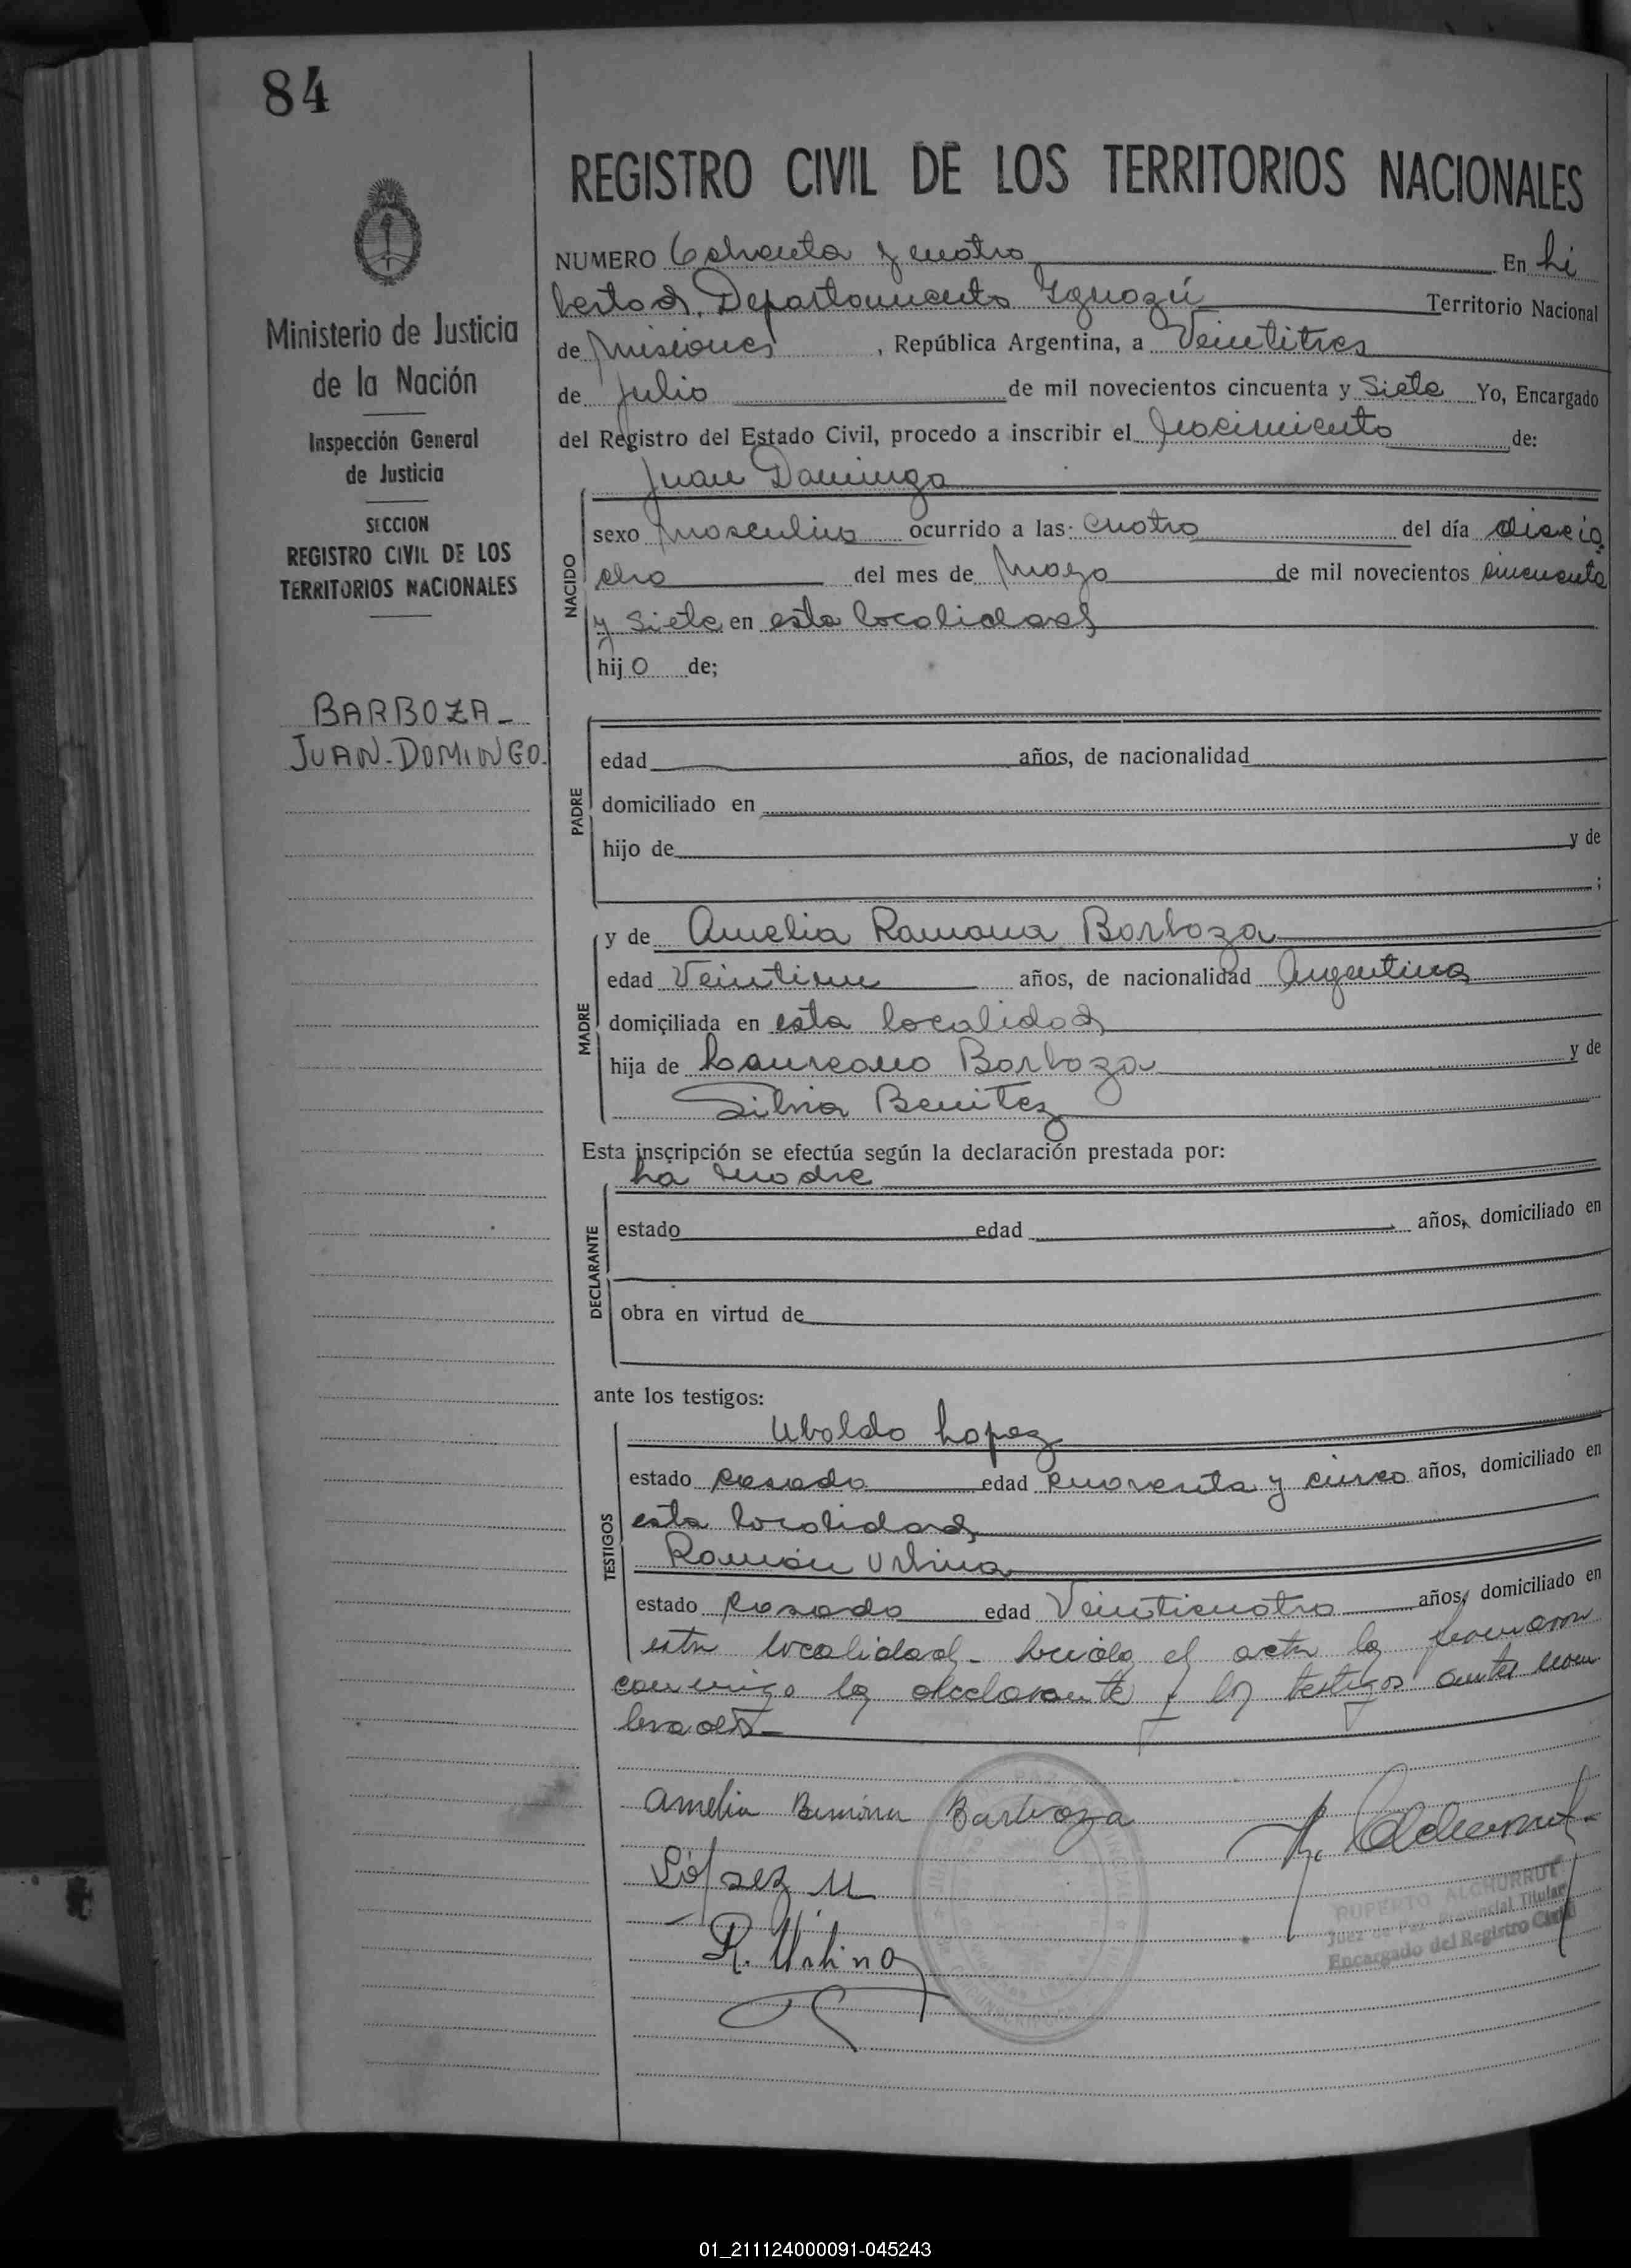 84
REGISTRO CIVIL DE LOS TERRITORIOS NACIONALES
Ministerio de Justicia
de la Nación
Inspección General
de Justicia
SECCION
REGISTRO CIVIL DE LOS
TERRITORIOS NACIONALES
BARBOZA-
JUAN-DOMINGO.
NUMERO Ochenta y cuatro En Li
bertad, Departamento Iguazú Territorio Nacional
de Misiones, República Argentina, a Veintitres
de Julio de mil novecientos cincuenta y Siete Yo, Encargado
del Registro del Estado Civil, procedo a inscribir el Nacimiento de:
Juan Domingo
NACIDO
sexo masculino ocurrido a las cuatro del día diecio
cho del mes de Mayo de mil novecientos cincuenta
y Siete en esta localidad
hijo de;
PADRE
edad años, de nacionalidad
domiciliado en
hijo de y de
;
MADRE
y de Amelia Ramona Barboza
edad Veintiun años, de nacionalidad Argentina
domiciliada en esta localidad
hija de Laureano Barboza y de
Silvia Benitez
Esta inscripción se efectúa según la declaración prestada por:
La madre
DECLARANTE
estado edad años, domiciliado en
obra en virtud de
ante los testigos:
TESTIGOS
Ubaldo Lopez
estado Casado edad cuarenta y cinco años, domiciliado en
esta localidad
Ramón Urbina
estado Casado edad Veinticuatro años, domiciliado en
esta localidad - Leída el acta la firmaron
conmigo la declarante y los testigos antes nom
brados-
Amelia Ramona Barboza
López U
R. Urbina
RUPERTO ALCHURRUT
Juez de Paz Provincial Titular
Encargado del Registro Civil
01_211124000091-045243